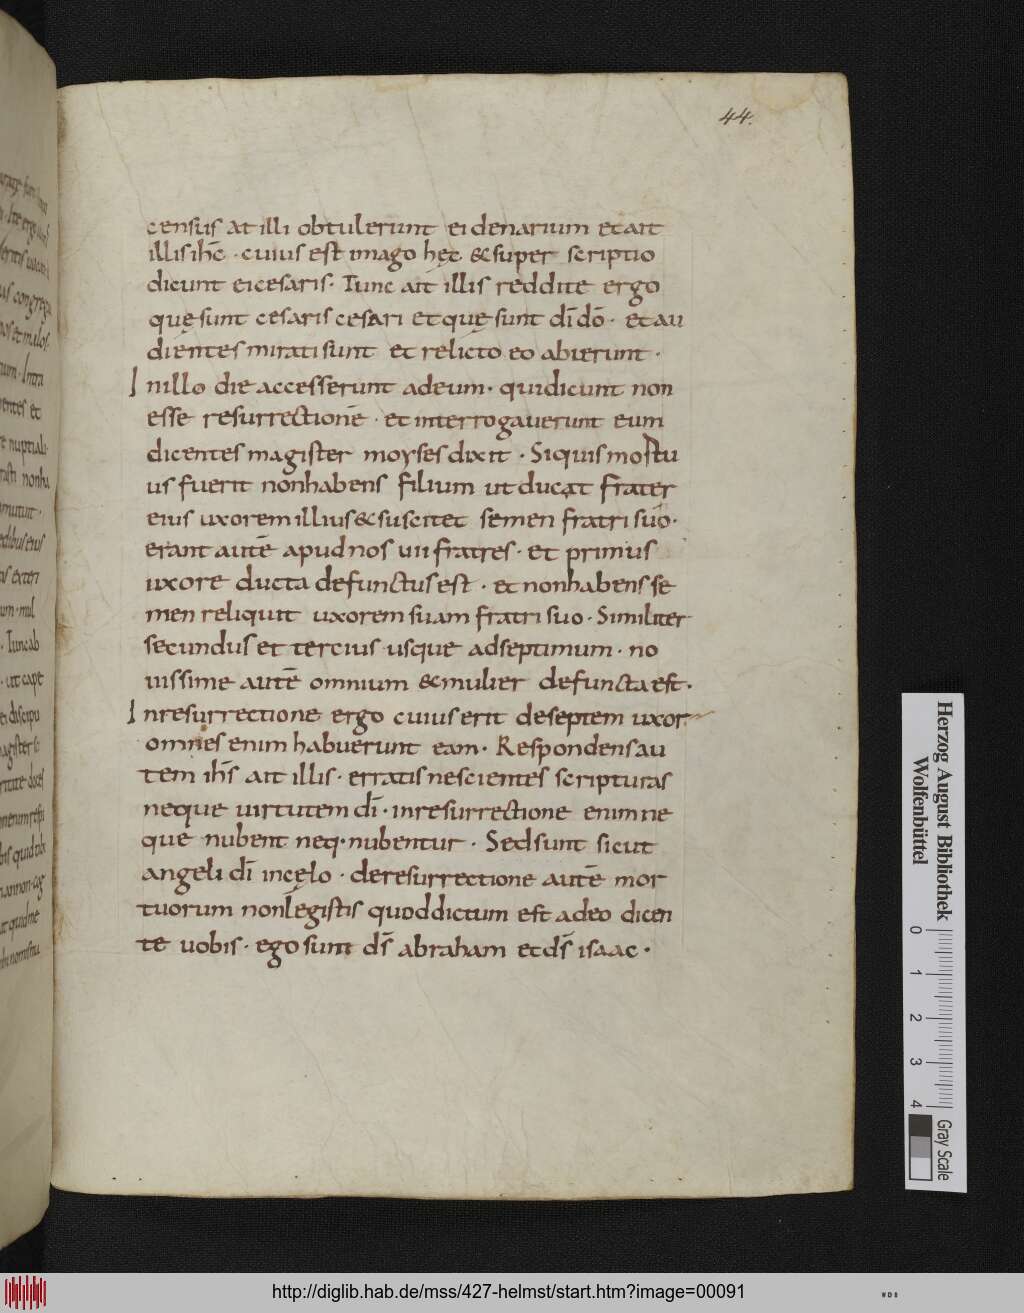 44.
census at illi obtulerunt ei denarium et ait
illis ihc̄ · cuius est imago hęc & super scriptio
dicunt ei cesaris · Tunc ait illis reddite ergo
quę sunt cesaris cesari et quę sunt dī dō · et au
dientes mirati sunt et relicto eo abierunt ·
In illo die accesserunt ad eum · qui dicunt non
esse resurrectionē · et interrogaverunt eum
dicentes magister moyses dixit · Si quis mortu
us fuerit non habens filium ut ducat frater
eius uxorem illius & suscitet semen fratri suo ·
erant autē apud nos uii fratres · et primus
uxore ducta defunctus est · et non habens se
men reliquit uxorem suam fratri suo · Similiter
secundus et tercius usque ad septimum · no
uissime autē omnium & mulier defuncta est ·
In resurrectione ergo cuius erit de septem uxor
omnes enim habuerunt eam · Respondens au
tem ihs̄ ait illis · erratis nescientes scripturas
neque uirtutem dī · in resurrectione enim ne
que nubent neq · nubentur · Sed sunt sicut
angeli dī in cęlo · de resurrectione autē mor
tuorum non legistis quod dictum est a deo dicen
te uobis · ego sum ds̄ abraham et ds̄ isaac ·
Herzog August Bibliothek
Wolfenbüttel
0 1 2 3 4
Gray Scale
http://diglib.hab.de/mss/427-helmst/start.htm?image=00091